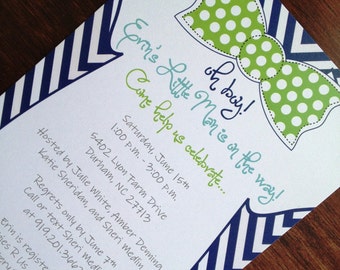 oh boy!
Erin's Little Man is on the way!
Come help us celebrate...
Saturday, June 15th
1:00 p.m. - 3:00 p.m.
5402 Lyon Farm Drive
Durham, NC 27713
Hosted by Julie White, Amber Denning
Katie Sheridan, and Sheri Medlin
Regrets only by June 7th
Call or text Sheri Medlin
at 919.201.
Erin is registere
R Us